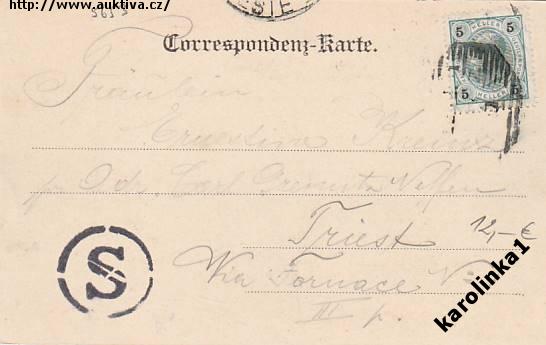 http://www.auktiva.cz/
5695
ESTE
Correspondenz-Karte.
5 HELLER 5
5 HELLER 5
Fräulein
Ernestine Krainz
Carl Greinitz Neffen
Triest 12,-€
Via Fornace N
III p.
S
karolinka1